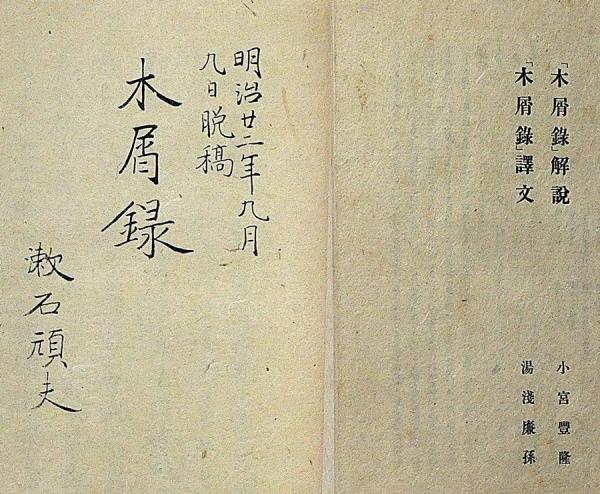 「木屑錄」解說　小宮豐隆
「木屑錄」譯文　湯淺廉孫
明治廿二年九月
九日脱稿
木屑録
漱石頑夫